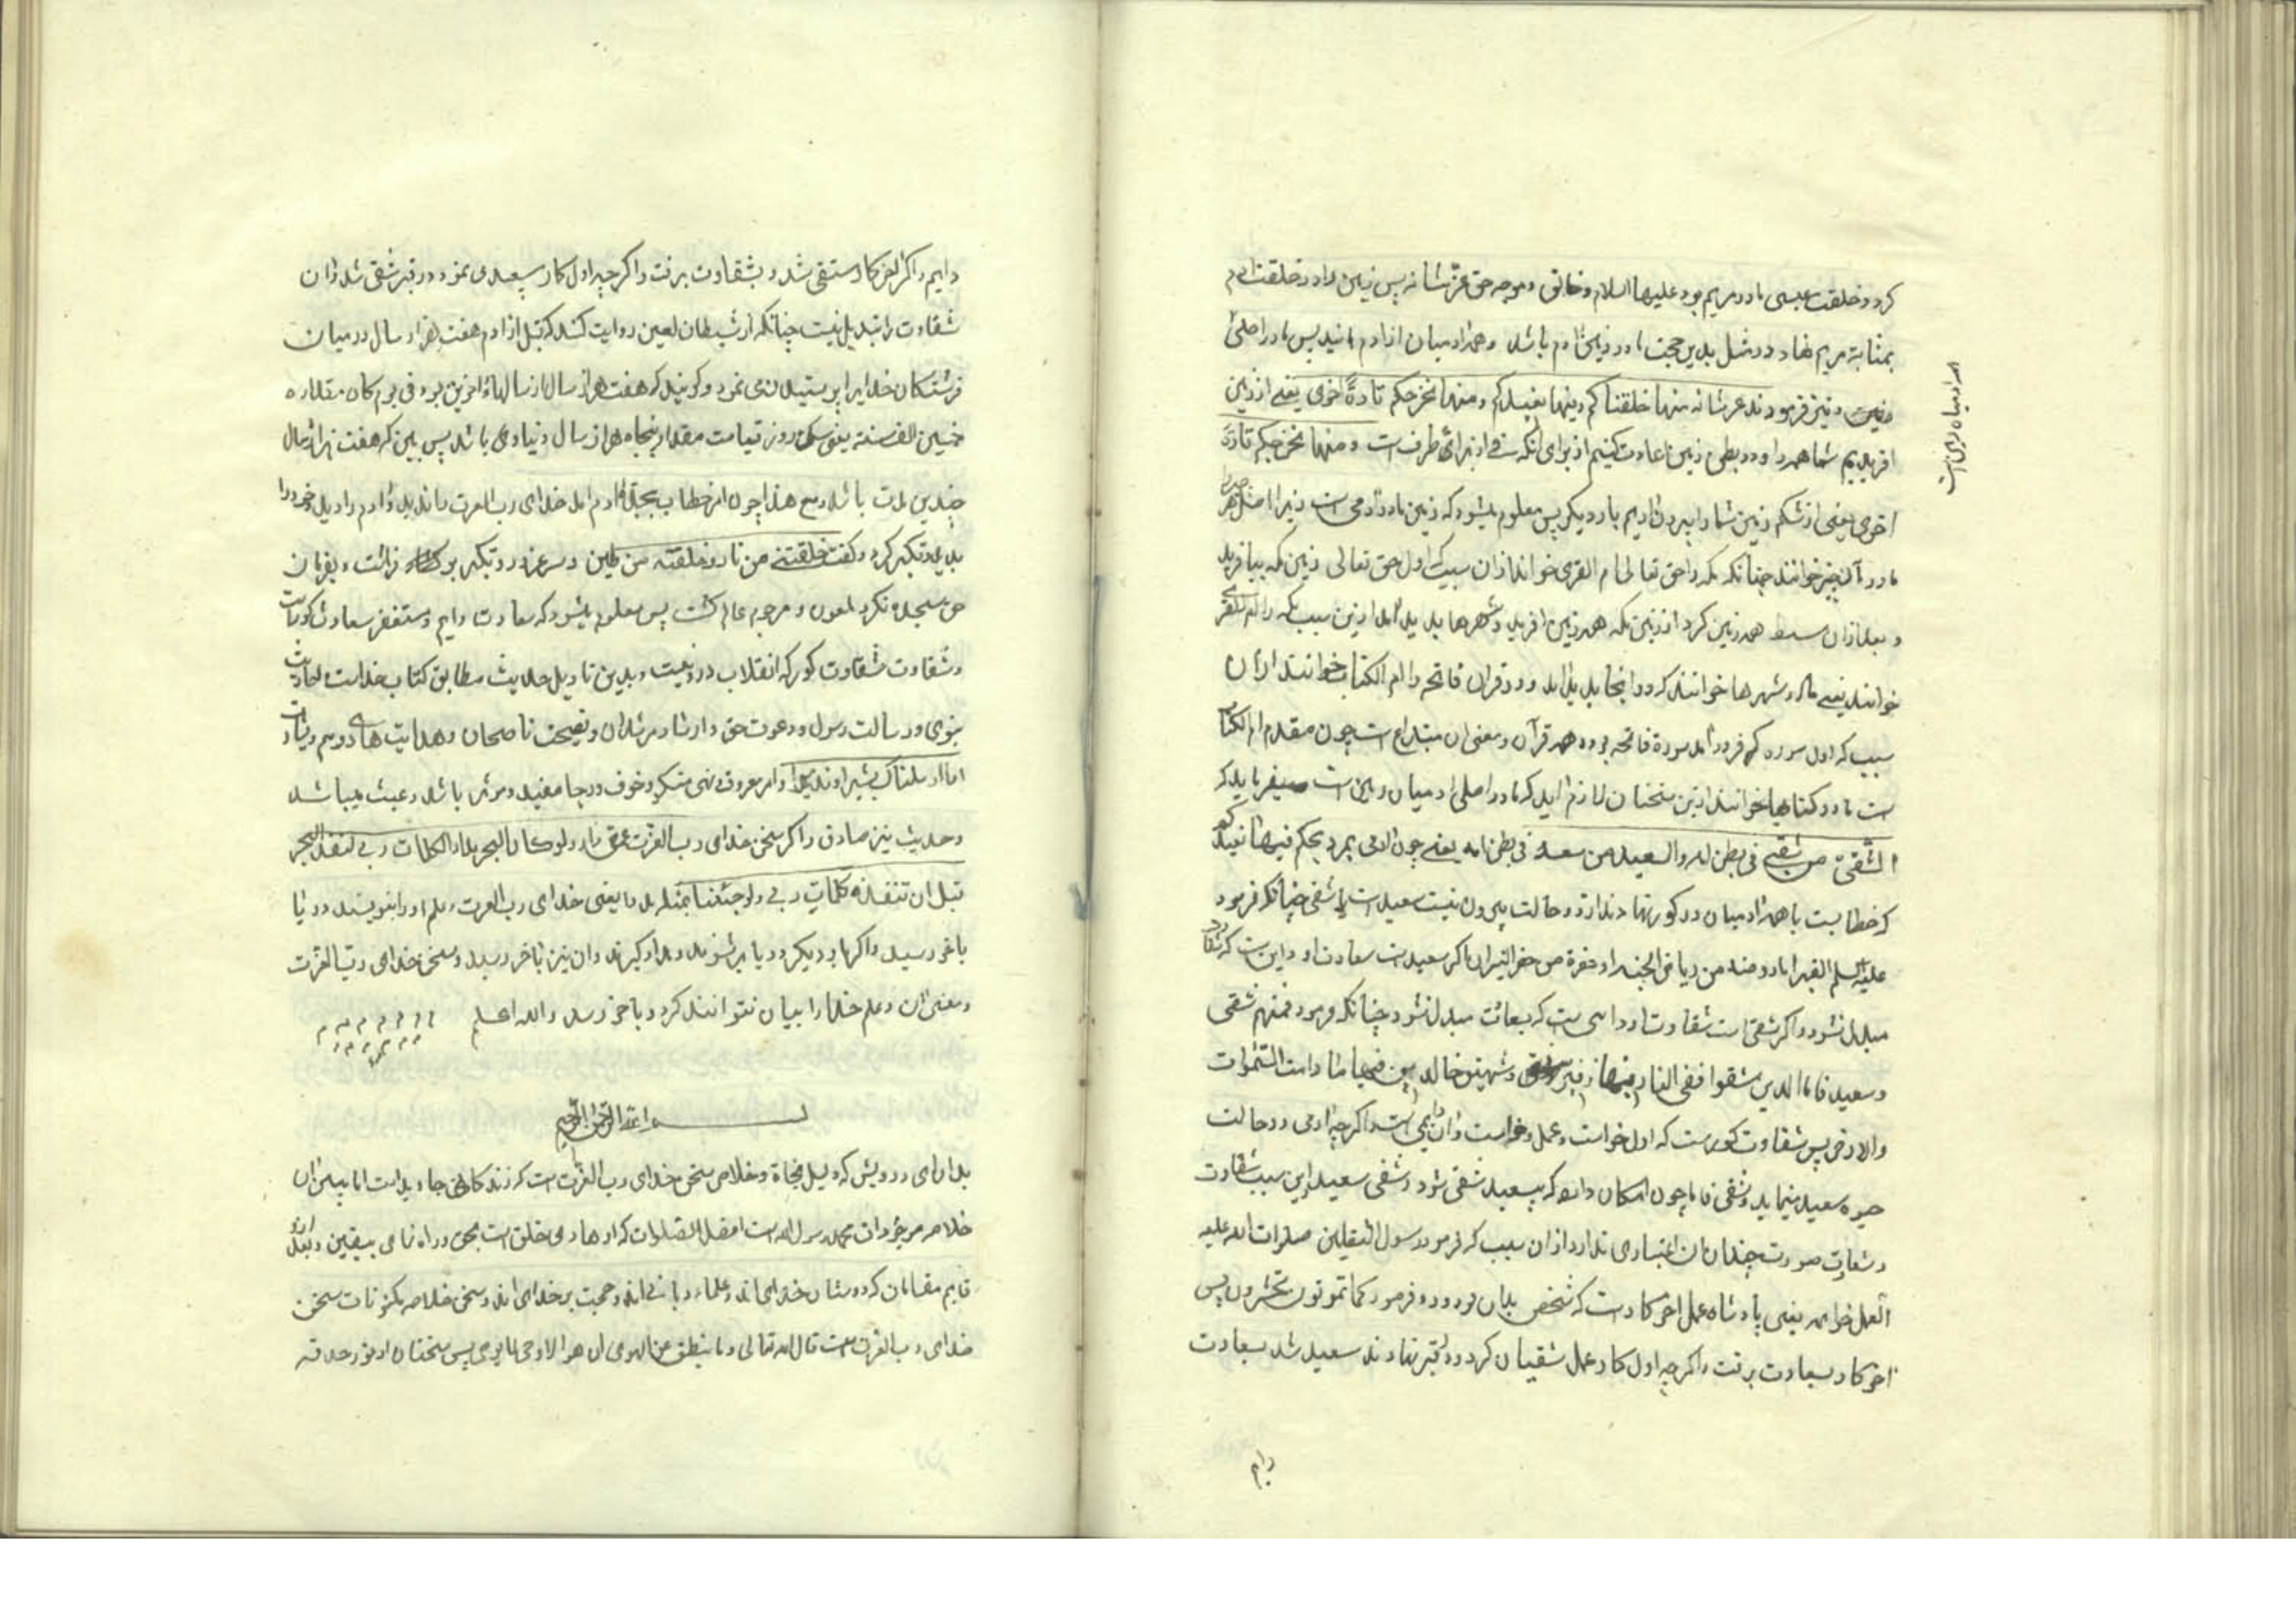 کرد و خلقت عیسی مادر مریم بود علیها السلام و خالق و موجد حق عزّ شانه پس زمین را در خلقت ادم
بمثابة مریم نهاد در مثل بدین حجت مادر زمین ادم باشد و همه ادمیان از ادم اند پس مادر اصلی
زمین و نیز فرمودند عز شانه منها خلقناکم وفیها نعیدکم ومنها نخرجکم تارةً اخری یعنی از زمین
افریدیم شما همه را و در بطن زمین اعادت کنیم از برای انکه فی از برای ظرف است ومنها نخرجکم تارةً
اخری یعنی از شکم زمین شما را بیرون اریم بار دیگر پس معلوم میشود که زمین مادر ادمی است زیرا اصل هر
مادر آن چیز خوانند چنانکه مکه را حق تعالی ام القری خواند از ان سبب که اول حق تعالی زمین مکه بیافرید
و بعد از ان همه زمین کرد از زمین مکه همه زمین افرید و شهرها پدید آمد ازین سبب مکه را ام القری
خوانند یعنی مادر شهرها خوانند که در انجا پدید آمد و در قران فاتحه را ام الکتاب خوانند از ان
سبب که اول سوره که فرود آمد سورة فاتحه بود و همه قرآن و معنی ان چون مقدم ام الکتاب
است مادر کتابها خوانند ازین سخنان لازم اید که مادر اصلی ادمیان زمین است میفرماید که
الشقیّ من شقی فی بطن امه والسعید من سعد فی بطن امه یعنی چون ادمی بمرد بحکم فیها نعیدکم
که خطابست با همه ادمیان در کور نهادند از دو حالت بیرون نیست سعید است یا شقی چنانکه فرمود
علیه السلم القبر اما روضة من ریاض الجنه او حفرة من حفر النیران اگر سعید است سعادت او
مبدل نشود و اگر شقی است شقاوت او که بسعادت مبدل نشود چنانکه فرمود فمنهم شقی
وسعید فاما الذین شقوا ففی النار لهم فیها زفیر وشهیق خالدین فیها ما دامت السموات
والارض پس شقاوت کورست که اول خواست و عمل و ان دایمی است و اگرچه ادمی در حالت
حیوه سعید مینماید و شقی فاما چون امکان دارد که سعید شقی شود و شقی سعید ازین سبب شقاوت
و سعادت صورت چندان ان اعتباری ندارد از ان سبب که فرمود رسول الثقلین صلوات الله علیه
العمل خواتمه یعنی پادشاه عمل اخر کارست که شخص بدان بود و فرمود کما تموتون تحشرون پس
اخر کار بسعادت برفت و اگرچه اول کار عمل شقیان کرد در قبر نهادند سعید شد بسعادت
دایم
دایم و اگر اخر کار شقی شد و بشقاوت برفت و اگرچه اول کار سعیدی نمود در قبر شقی شد و ان
شقاوت را تبدیل نیست چنانکه از شیطان لعین روایت کنند که قبل از ادم هفت هزار سال در میان
فرشتکان خدایرا پرستیدن می نمود و کویند که هفت هزار سال از سالهاء اخرین بود فی یوم کان مقداره
خمسین الف سنة یعنی یک روز قیامت مقدار پنجاه هزار سال دنیاوی باشد پس ببین که هفت هزار سال
چندین مدت باشد و مع هذا چون امر خطاب بسجدة ادم امد خدای رب العزت را ندید و ادم را دید خود را
بدید و تکبر کرد و کفت خلقتنی من نار وخلقته من طین
حق سجده نکرد ملعون و مرجوم عالم کشت پس معلوم میشود که سعادت دایم
و شقاوت شقاوت کور که انقلاب درو نیست و بدین تاویل حدیث مطابق کتاب خداست احادیث
نبوی و رسالت رسول و دعوت حق و ارشاد مرشدان و نصیحت ناصحان و هدایت هادی
انا ارسلناک بشیرا ونذیرا و امر معروف و نهی منکر و خوف و رجا مفید و موثر باشد و عبث نباشد
و حدیث نیز صادق و اکر سخن خدای رب العزت لو کان البحر مدادا لکلمات ربی لنفد البحر
قبل ان تنفد کلمات ربی ولو جئنا بمثله مددا یعنی خدای رب العزت علم او را بنویسند دریا
باخر رسید و اکر بار دیکر دریا پر شوند و مداد کیرند و ان نیز باخر رسد و سخن خدای رب العزت
و معنی ان و علم خدا را بیان نتوانند کرد و باخر نرسد والله اعلم
بسم الله الرحمن الرحیم
بدان ای درویش که دلیل نجاة و خلاص سخن خدای رب العزت است که زندکانی جاویدست اما پس از ان
خلاصه موجودات محمد رسول الله است افضل الصلوات که او هادی خلق است بحق و راه نمای بیقین و بعد از و
قایم مقامان که دوستان خدای اند و علماء ربانی اند و حجت بر خدای اند و سخن خلاصه مکنونات سخن
خدای رب العزت است قال الله تعالی وما ینطق عن الهوی ان هو الا وحی یوحی پس سخنان او